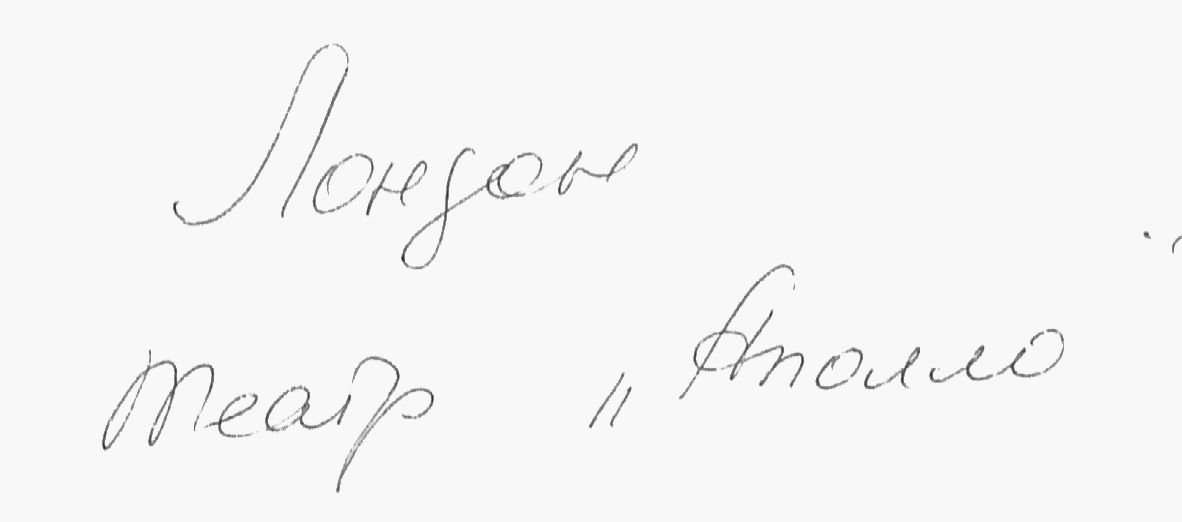 Лондон
Театр „Аполло"